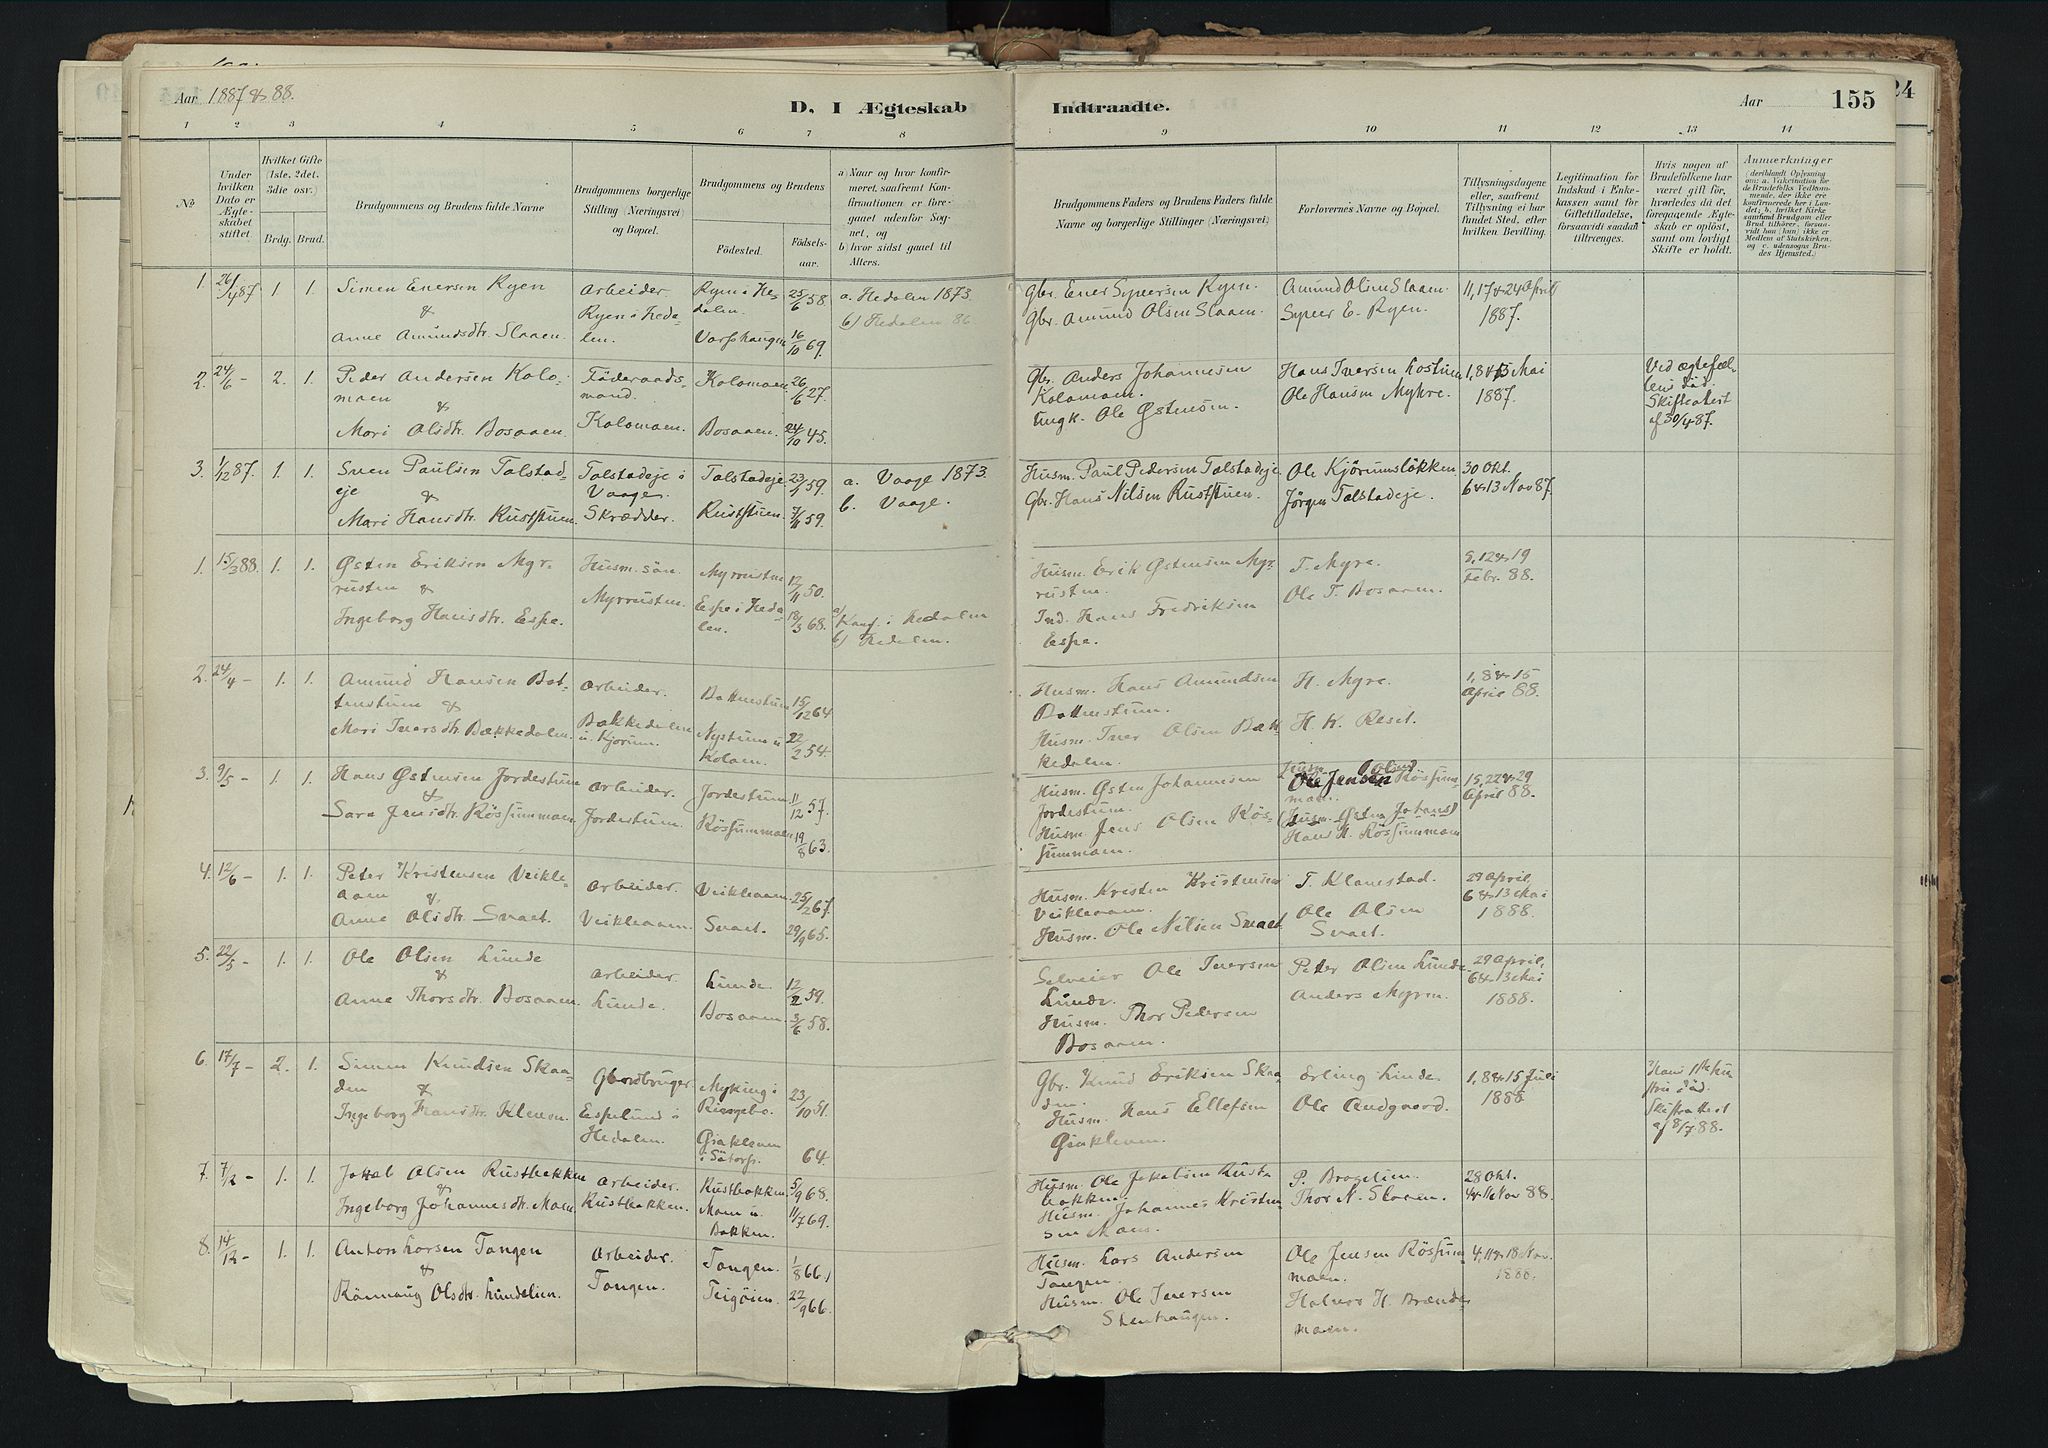 Aar 1887 & 88.
D. I Ægteskab Indtraadte.
Aar 155
24
1 2 3 4 5 6 7 8 9 10 11 12 13 14
No
Under hvilken Dato er Ægteskabet stiftet.
Hvilket Gifte (1ste, 2det, 3die osv.)
Brdg. Brud.
Brudgommens og Brudens fulde Navne
Brudgommens borgerlige Stilling (Næringsvei) og Bopæl.
Brudgommens og Brudens
Fødested. Fødsels-aar.
a) Naar og hvor konfirmeret, saafremt Konfirmationen er foregaaet udenfor Sognet, og
b) hvor sidst gaaet til Alters.
Brudgommens Faders og Brudens Faders fulde Navne og borgerlige Stillinger (Næringsvei)
Forlovernes Navne og Bopæl.
Tillysningsdagene eller, saafremt Tillysning ei har fundet Sted, efter hvilken Bevilling.
Legitimation for Indskud i Enkekassen samt for Giftetilladelse, forsaavidt saadan tiltrænges.
Hvis nogen af Brudefolkene har været gift før, hvorledes da det foregaaende Ægteskab er opløst, samt om lovligt Skifte er holdt.
Anmærkninger
1. 26/4 87. 1. 1. Simen Enersen Ryen
&
Anne Amundsdtr. Slaaen.
Arbeider.
Ryen i Hedalen.
Ryen i Hedalen. 25/6 58.
Varphaugen 16/10 69.
a. Hedalen 1873.
b) Hedalen 86
Gbr. Ener Syversen Ryen.
Gbr. Amund Olsen Slaaen.
Amund Olsen Slaaen.
Syver E. Ryen.
11, 17 & 24 April
1887.
2. 24/6 - 2. 1. Peder Andersen Kolomoen
&
Mari Olsdtr. Bosaaen.
Föderaadsmand.
Kolomoen.
Kolomoen. 26/6 27.
Bosaaen. 24/10 45.
Gbr. Anders Johannesen
Kolomoen.
Ungk. Ole Østensen.
Hans Iversen Lostuen
Ole Hansen Myhre.
1, 8 & 15 Mai
1887.
Ved ægtefællens död.
Skifteattest
af 30/4 87.
3. 1/12 87. 1. 1. Sven Paulsen Tolstadeje
&
Mari Hansdtr. Ruststuen.
Tolstadeje i
Vaage.
Skrædder.
Tolstadeje. 23/1 59.
Ruststuen. 7/11 59.
a. Vaage 1873.
b. Vaage.
Husm. Paul Pedersen Tolstadeje
Gbr. Hans Nilsen Ruststuen.
Ole Kjörumslökken
Jörgen Tolstadeje.
30 Okt.
6 & 13 Nov 87.
1. 15/3 88. 1. 1. Østen Eriksen Myrrusten
&
Ingeborg Hansdtr. Espe.
Husm.sön
Myrrusten.
Myrrusten 12/11 50.
Espe i Hedalen. 18/3 68.
a) Konf. i Hedalen
b) Hedalen.
Husm. Erik Østensen Myrrusten.
Ind. Hans Fredriksen
Espe.
T. Myre.
Ole T. Bosaaen.
5, 12 & 19
Febr. 88.
2. 24/4 - 1. 1. Amund Hansen Bottenstuen
&
Mari Iversdtr. Bækkedalen.
Arbeider.
Bækkedalen
u. Kjörum.
Bottenstuen 15/12 64
Nystuen u.
Koloen. 22/2 54.
Husm. Hans Amundsen
Bottenstuen.
Husm. Iver Olsen Bækkedalen.
H. Myre.
H. K. Reset.
1, 8 & 15
April 88.
3. 9/5 - 1. 1. Hans Østensen Jordestuen
&
Sara Jensdtr. Rössummoen.
Arbeider.
Jordestuen.
Jordestuen 11/12 57.
Rössummoen 19/8 63.
Husm. Østen Johannesen
Jordestuen.
Husm. Jens Olsen Rössummoen.
Ole Jensen Rössummoen.
(Husm. Østen Johans)
Hans H. Rössummoen
15, 22 & 29
April 88.
4. 12/6 - 1. 1. Peter Kristensen Veikleaaen
&
Anne Olsdtr. Svaet.
Arbeider.
Veikleaaen.
Veikleaaen. 25/2 67.
Svaet. 29/9 65.
Husm. Kristen Kristensen
Veikleaaen.
Husm. Ole Nilsen Svaet
T. Klonestad.
Ole Olsen
Svaet.
29 April,
6 & 13 Mai
1888.
5. 22/5 - 1. 1. Ole Olsen Lunde
&
Anne Thorsdtr. Bosaaen.
Arbeider.
Lunde.
Lunde. 12/2 59.
Bosaaen. 3/6 58.
Selveier Ole Iversen
Lunde.
Husm. Thor Pedersen
Bosaaen.
Peter Olsen Lunde.
Anders Myren.
29 April,
6 & 13 Mai
1888.
6. 17/7 - 2. 1. Simen Knudsen Skaaden
&
Ingeborg Hansdtr. Kleven.
Gbordbruger
Espelund i
Hedalen.
Myking i
Ringebo. 23/10 51.
Gjøkleven
i Sätorp. 64.
Gbr. Knud Eriksen Skaaden.
Husm. Hans Ellefsen
Gjøkleven.
Erling Linde.
Ole Andgaard.
1, 8 & 15 Juli
1888.
Hans 1ste hustru död.
Skifteattest
af 8/7 88.
7. 7/12 - 1. 1. Jakob Olsen Rustbakken
&
Ingeborg Johannesdtr. Moen
Arbeider.
Rustbakken.
Rustbakken 5/9 68.
Moen u.
Bakken. 11/7 69.
Husm. Ole Jakobsen Rustbakken.
Husm. Johannes Kristensen Moen.
P. Bragelien.
Thor N. Slaaen.
28 Okt.
4 & 11 Nov 88.
8. 14/12 - 1. 1. Anton Larsen Tangen
&
Rönnaug Olsdtr. Lundelien.
Arbeider.
Tangen.
Tangen. 1/8 66.
Teigöien. 22/9 66.
Husm. Lars Andersen
Tangen.
Husm. Ole Iversen
Stenhaugen.
Ole Jensen Rössummoen.
Halvor H. Brændemoen.
4, 11 & 18 Nov.
1888.